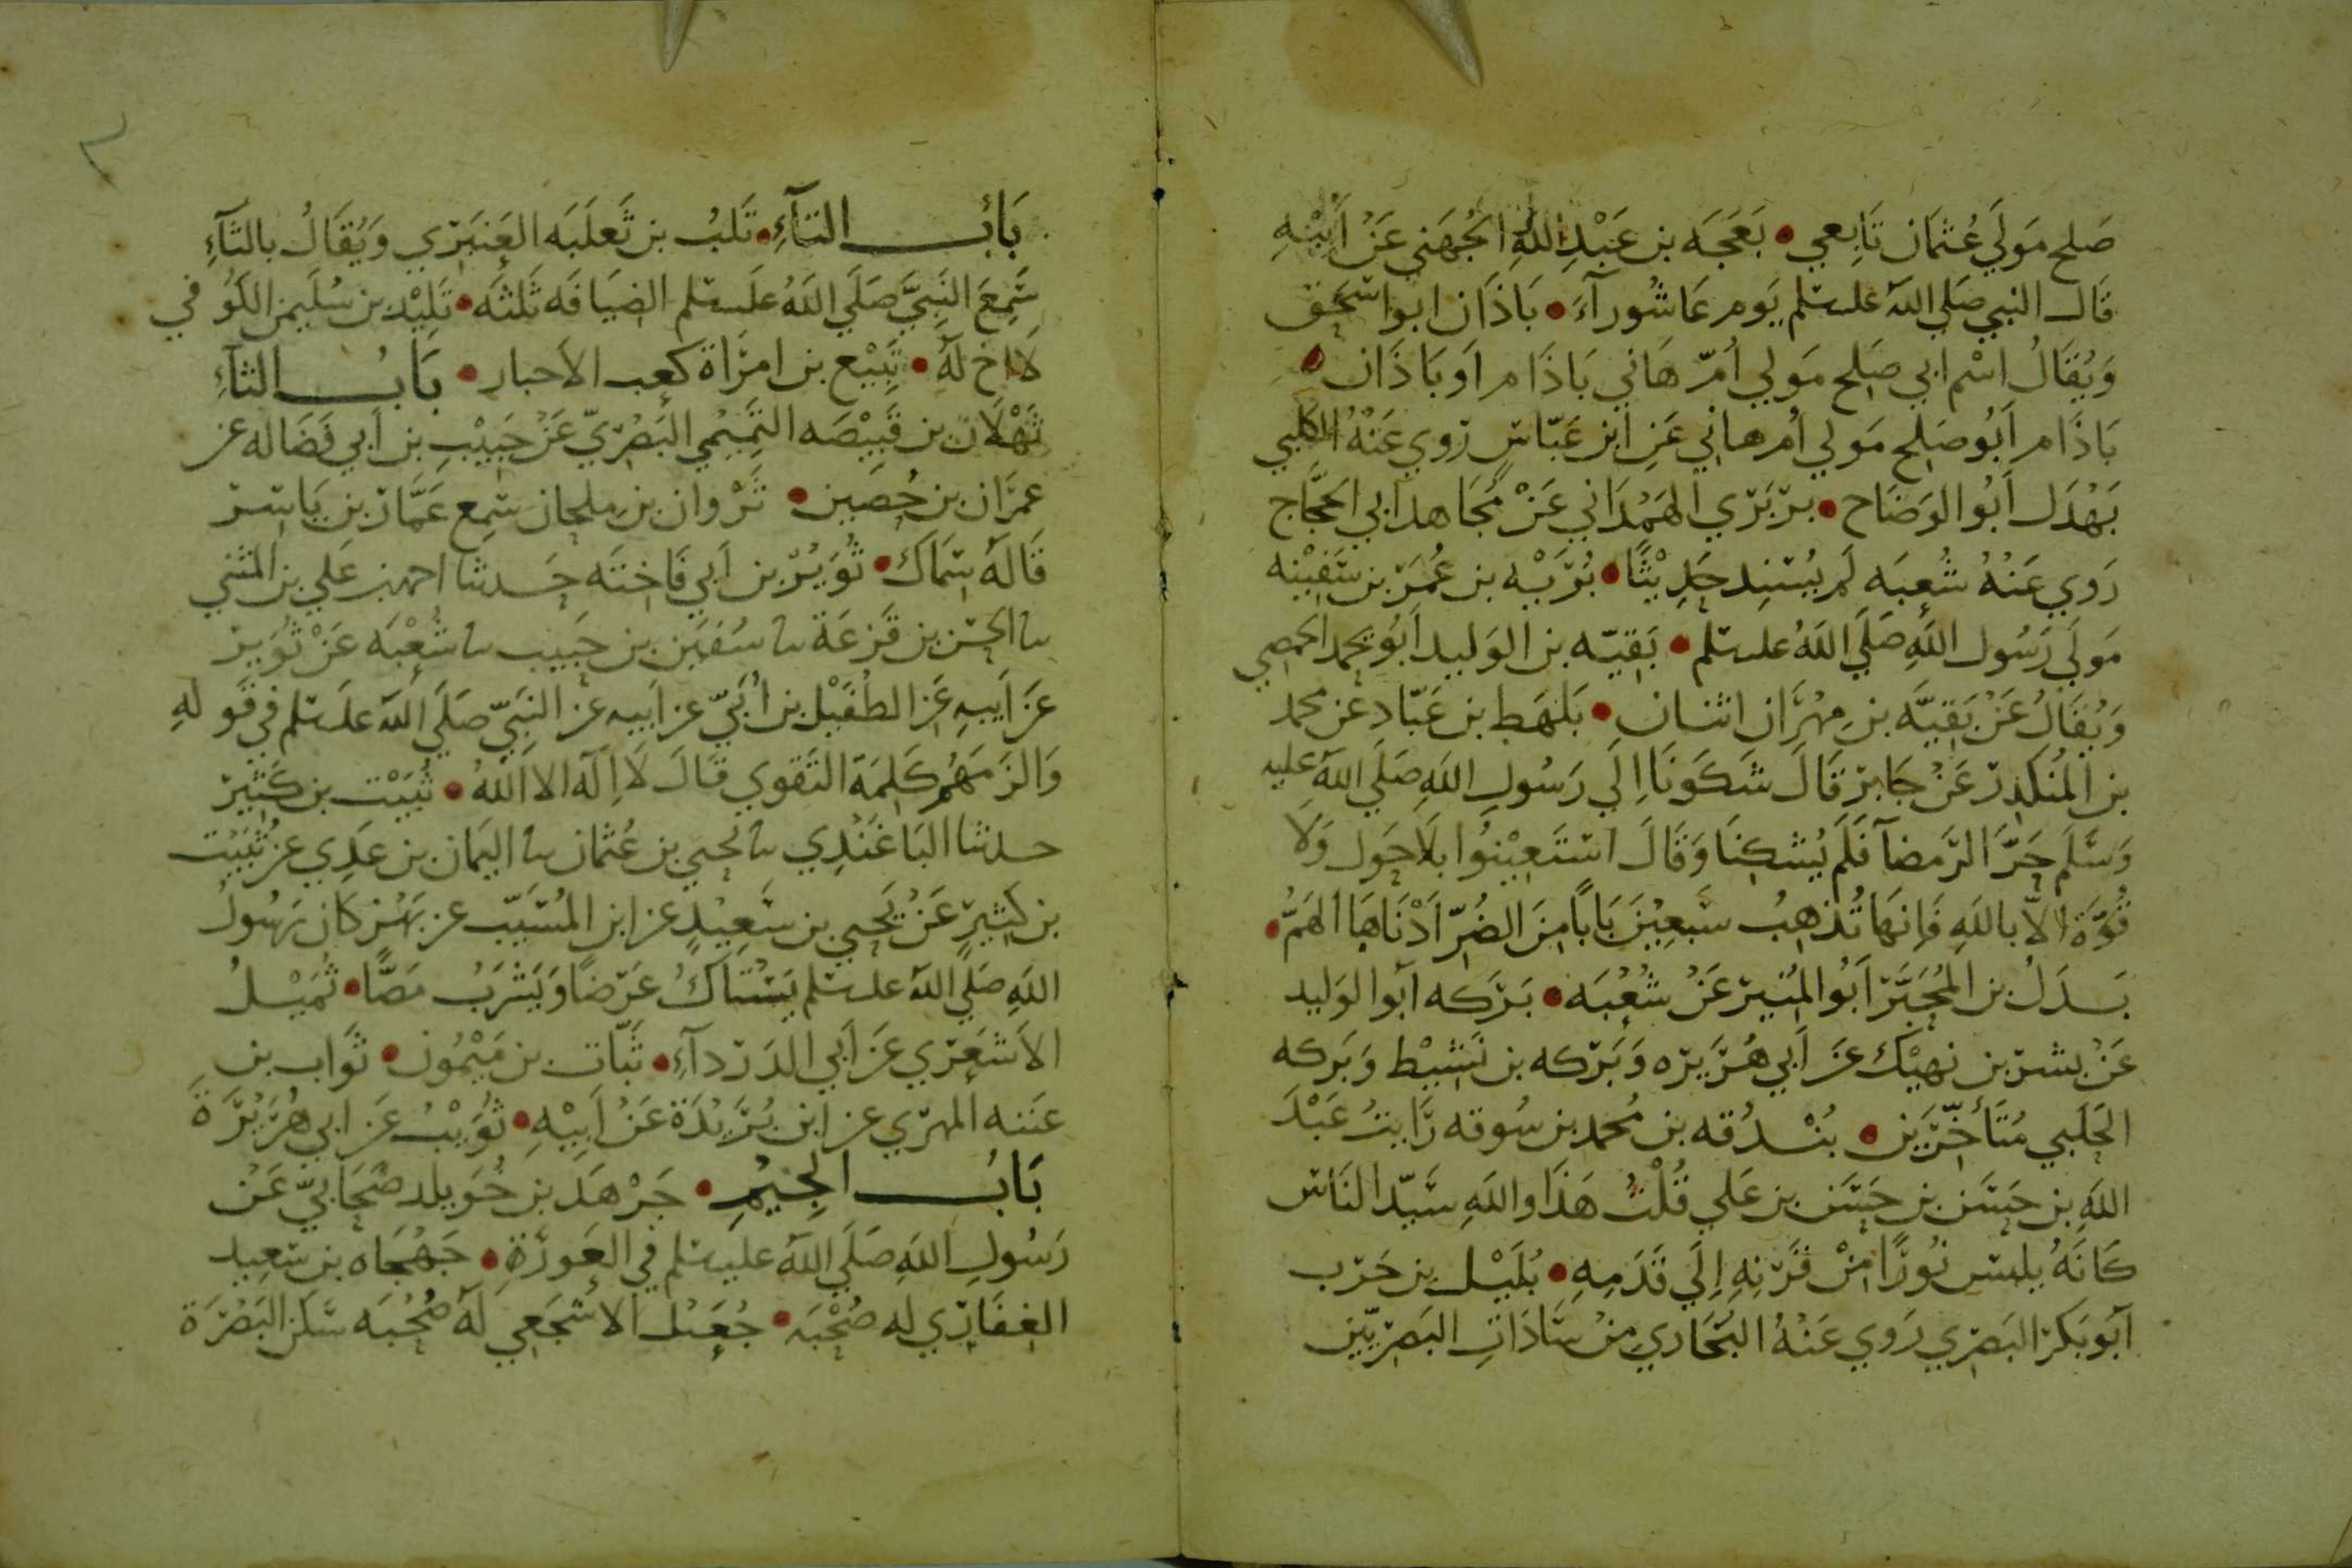 صَلح مَولَي عُثمَان تَابِعي • بَعَجَه بن عَبْدِ اللهِ الجُهَني عَنْ أَبْيْهِ
قَال النبي صَلي اللهُ علىسلم يَوم عَاشُورآءَ • بَاذَان ابواسحٰق
وَيُقَالُ اسْم ابي صَلح مَولي اُمّ هَاني بَاذَام اَو بَاذَان •
بَاذَام اَبُو صَلح مَولي اُم هاني عَنِ ابن عَبّاسٍ رَوي عَنْهُ الكلبي
بَهْدَل اَبُو الوَضَاح • بربَرّي الهَمْدَاني عَنْ مُجَاهد ابي الحجَّاج
رَوي عَنْهُ شُعبَه لَم يُسنِد حَدِيْثًا • بُرَيْه بن عُمَر بن سَفِيْنه
مَولَي رَسُول اللهِ صَلَي اللهُ علىسلم • بَقيّه بن الوَليد اَبُو يحمد الحمصي
وَيُقَالُ عَنْ بَقِيَّه بنِ مِهْرَان اثنان • بَلهَط بن عَبّاد عَن محمد
بن المُنكَدِر عَنْ جَابر قَالَ شَكَونَا اِلَي رَسُولِ اللهِ صَلَي اللهُ عليه
وَسَّلَم حَرَّ الرَمضآ فَلَم يُشكِنَا وَقَالَ استَعِيْنُوا بلَا حَول وَلَا
قُوَّة الّا باللهِ فَاِنهَا تُذهِبُ سَبعِيْنَ بَابًا مِنَ الضُرّ اَدْنَاهَا الهَمُّ •
بَدَلُ بن المُحبَّر اَبُو المُنير عَنْ شُعْبَه • بَرَكه اَبوا الوَليد
عَنْ بشر بن نَهِيْك عَن اَبي هُرَيرَه وَبَرَكه بن نَشيْط وَبَركه
الحَلَبي مُتَأخِّرَين • بُنْدُقه بن مُحمد بن سُوقه رَايتُ عَبْدَ
اللهِ بن حَسَن بن حَسَن بن عَلي قُلْتُ هَذَا واللهِ سَيّد النَاس
كَانَهُ يلبَس نُورًا مِنْ قَرْنِهِ اِلَي قَدَمِهِ • بُلَيْل بن حَرب
اَبَو بَكر البَصَري رَوي عَنْهُ البُخَاري مِنْ سَادَاتِ البَصَرِيّين
بَابُ التآءِ • تَلبُ بن ثَعلَبَه العَنبَرّي وَيُقَالُ بالثآءِ
سَمِعَ النَبيَّ صَلَي اللهُ علىسلم الضيَافَه ثَلثَه • تَلِيْد بن سُلَيمن الكُو في
لَا اخ لَهُ • تبيْع بن امرَاة كعب الأحبار • بَابُ الثآءِ
ثَهْلَان بن قَبِيْصَه التَمِيْمي البَصْريّ عَنْ حَبِيْبِ بن اَبي فَضَاله عن
عِمَران بن حُصَين • ثَرْوان بن مِلحَان سَمِع عَمَّار بن يَاسر
قَالَهُ سماك • ثُوَيْر بن اَبي فَاخِتَه حَدثنا احمد بن عَلي بن المثَني
نا الحسن بن قَزعَة نا سُفيَن بن حَبيب نا شُعْبَه عَنْ ثُوَير
عَن اَبيهِ عَن الطُفَيْل بن اُبَيّ عن اَبيه عن النَبيّ صَلَي اللهُ علىسلم في قَو لهِ
وَالزَمَهُم كَلِمَة التَقوي قَالَ لَا اِلَهَ الا اللهُ • ثُبَيْت بن كَثِير
حدثنا البَاغَنْدِي نا يحيي بن عُثمَان نا اليَمان بن عَدِي عن ثُبَيْت
بن كَثِيرٍ عَنْ يَحيي بن سَعِيْدٍ عن ابن المُسَيّب عن بَهز كان رَسُولُ
اللهِ صَلَي اللهُ علىسلم يَسْتَاكُ عَرْضًا وَيَشَرَبُ مَصًّا • ثُمَيْلُ
الاَشعَرّي عَن اَبي الدَردآءِ • ثَبّات بن مَيْمُون • ثَوَاب بن
عتبه المهرّي عن ابن بُرَيْدَة عَنْ اَبِيْهِ • ثُوَيْبُ عَن ابي هُرَيْرَة
بَابُ الجِيْمِ • جَرْهَد بن خُوَيلد صَحَابيّ عَنْ
رَسُولِ اللهِ صَلَي اللهُ عليهسلم فِي العَورَةِ • جَهْجَاه بن سَعِيد
الغفَارِّي لهِ صُحْبَه • جُعَيْل الاشجَعِي لَهُ صُحُبَه سَكَن البَصْرَة